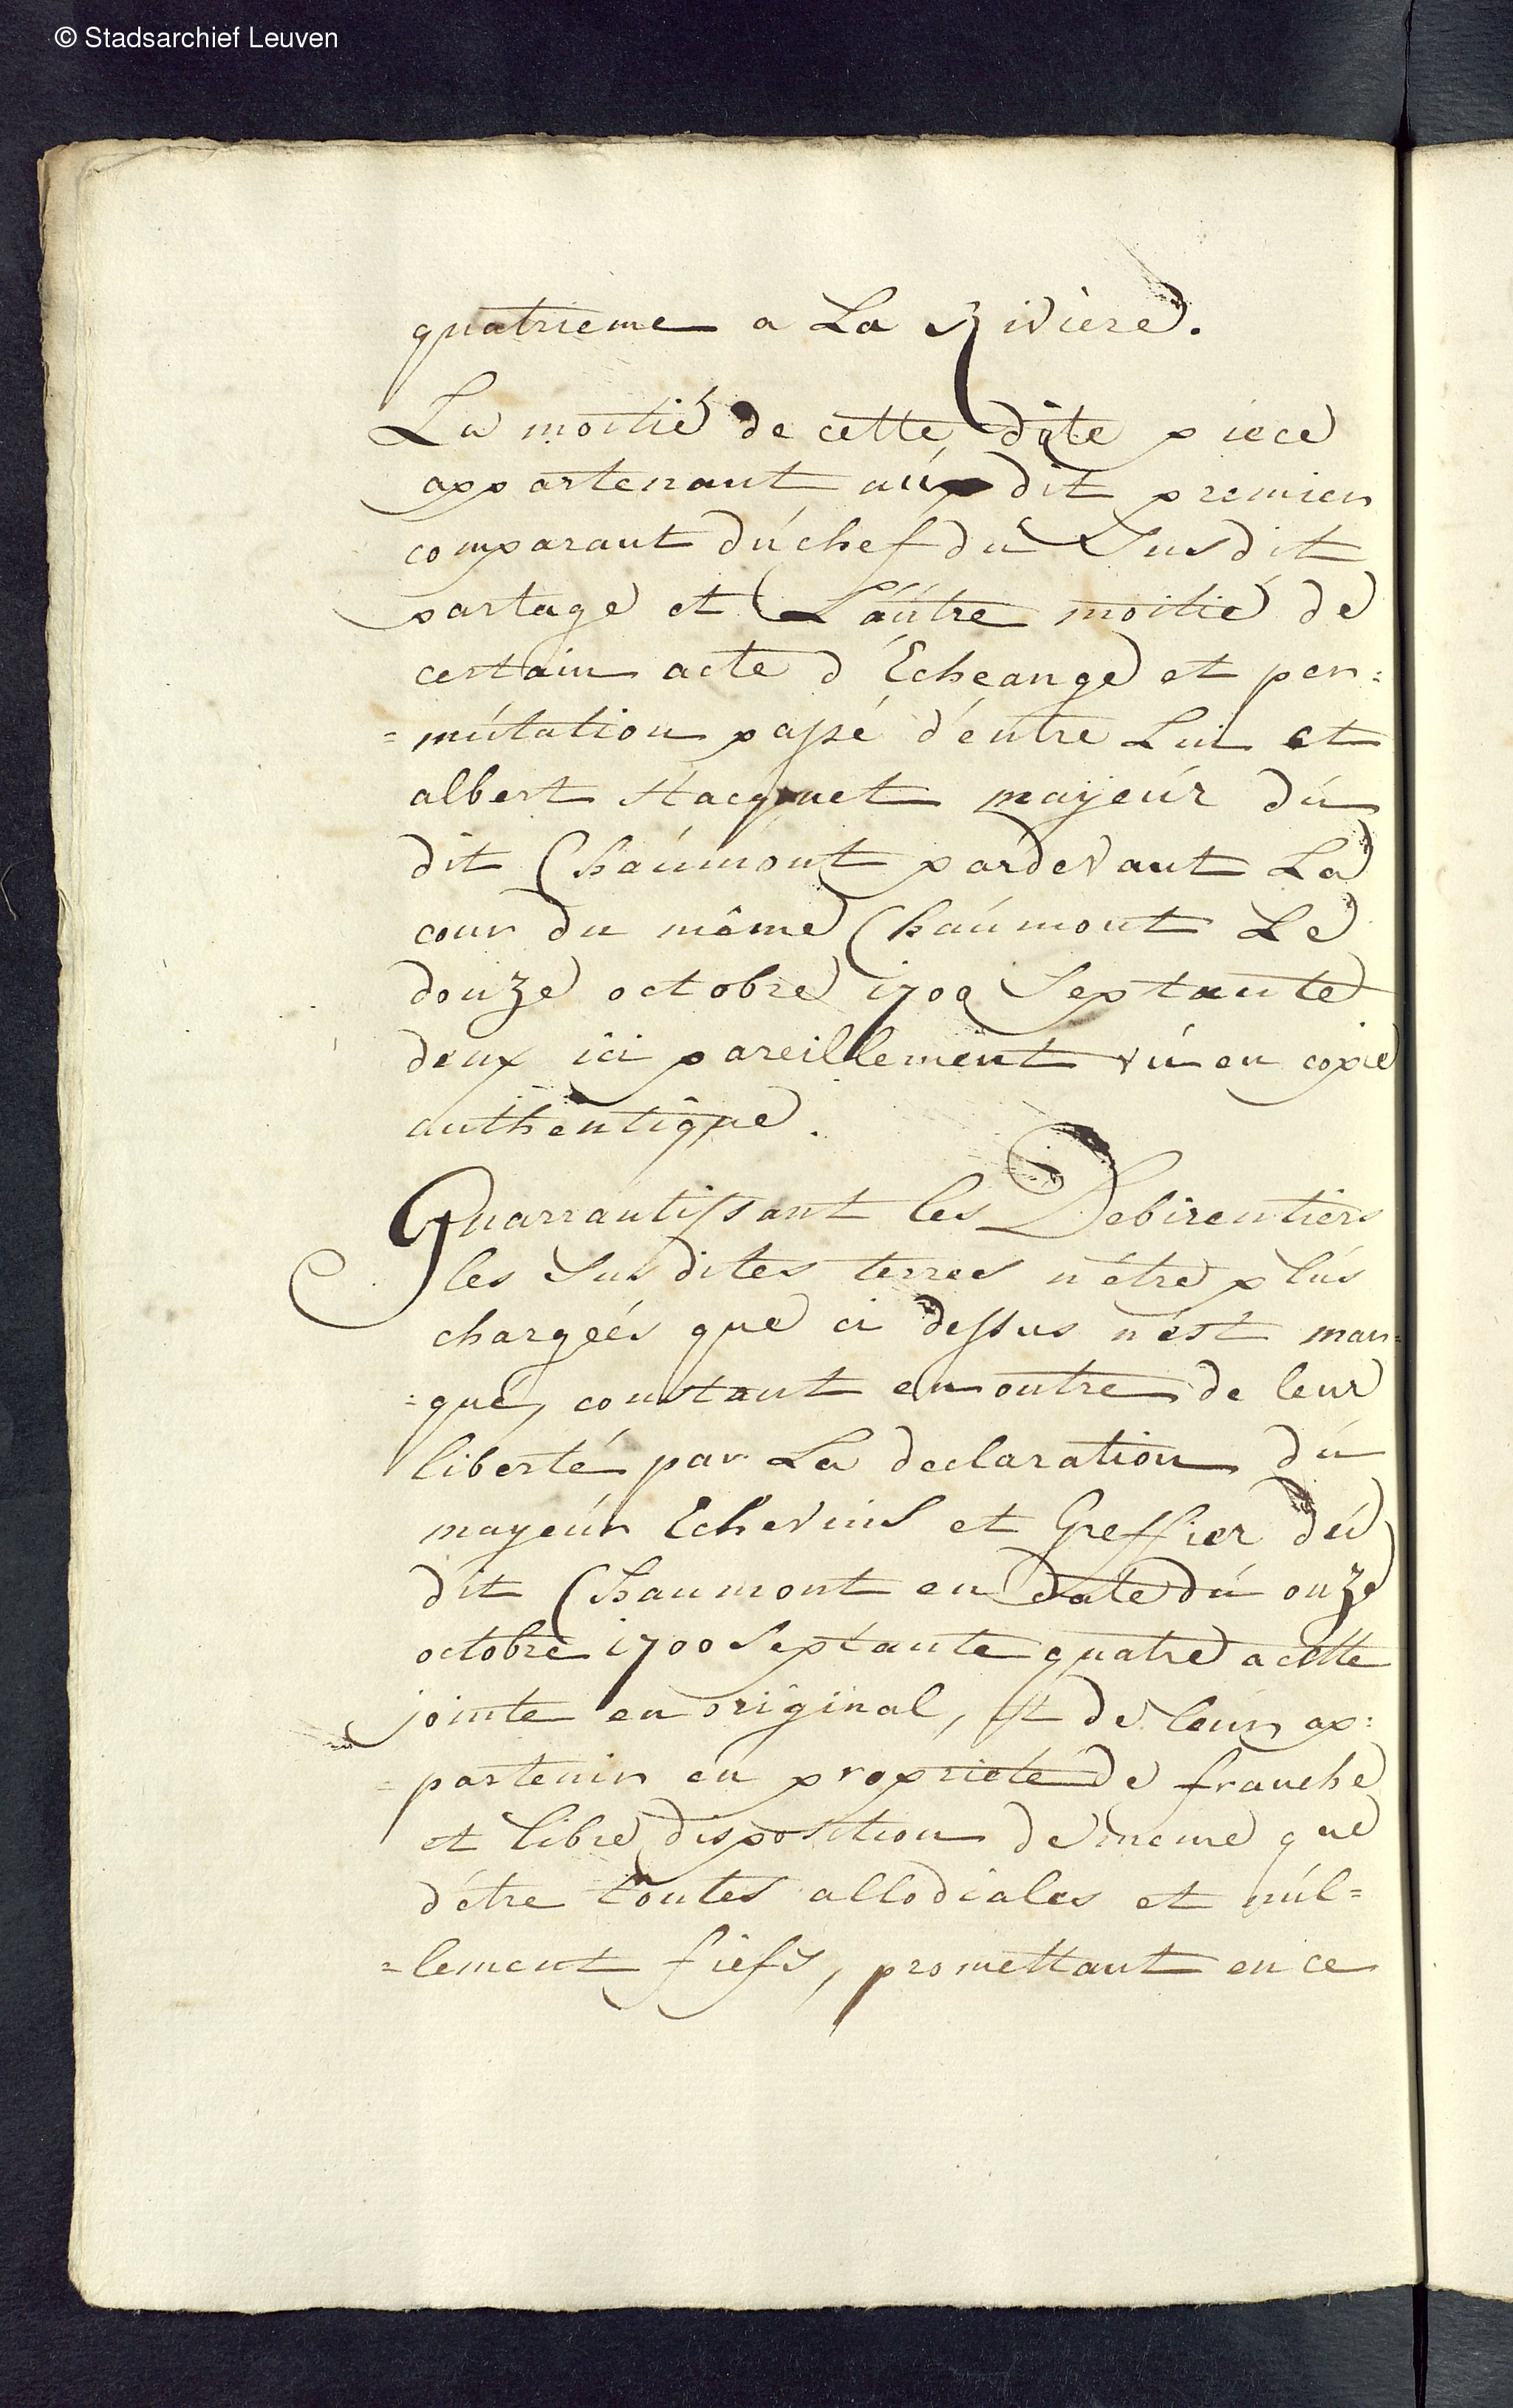 © Stadsarchief Leuven
quatrieme a La Rivière.
La moitié de cette dite piece
appartenant au dit premier
comparant du chef du Susdit
partage et L'autre moitié de
certain acte d'Echeange et per=
=mutation passé d'entre Lui et
albert Stacquet mayeur du
dit Chaumont pardevant La
cour du même Chaumont Le
douze octobre 1700 Septante
deux ici pareillement vu en copie
authentique.
Guarrantissant les Debirentiers
les Susdites terres n'être plus
chargées que ci dessus n'est mar=
=qué, constant en outre de leur
liberté par La declaration du
mayeur Echevins et Greffier du
dit Chaumont en date du onze
octobre 1700 Septante quatre a cette
jointe en original, et de leur ap=
=partenir en proprieté de franche
et libre disposition de meme que
d'être toutes allodiales et nul=
=lement fiefs, promettant en ce